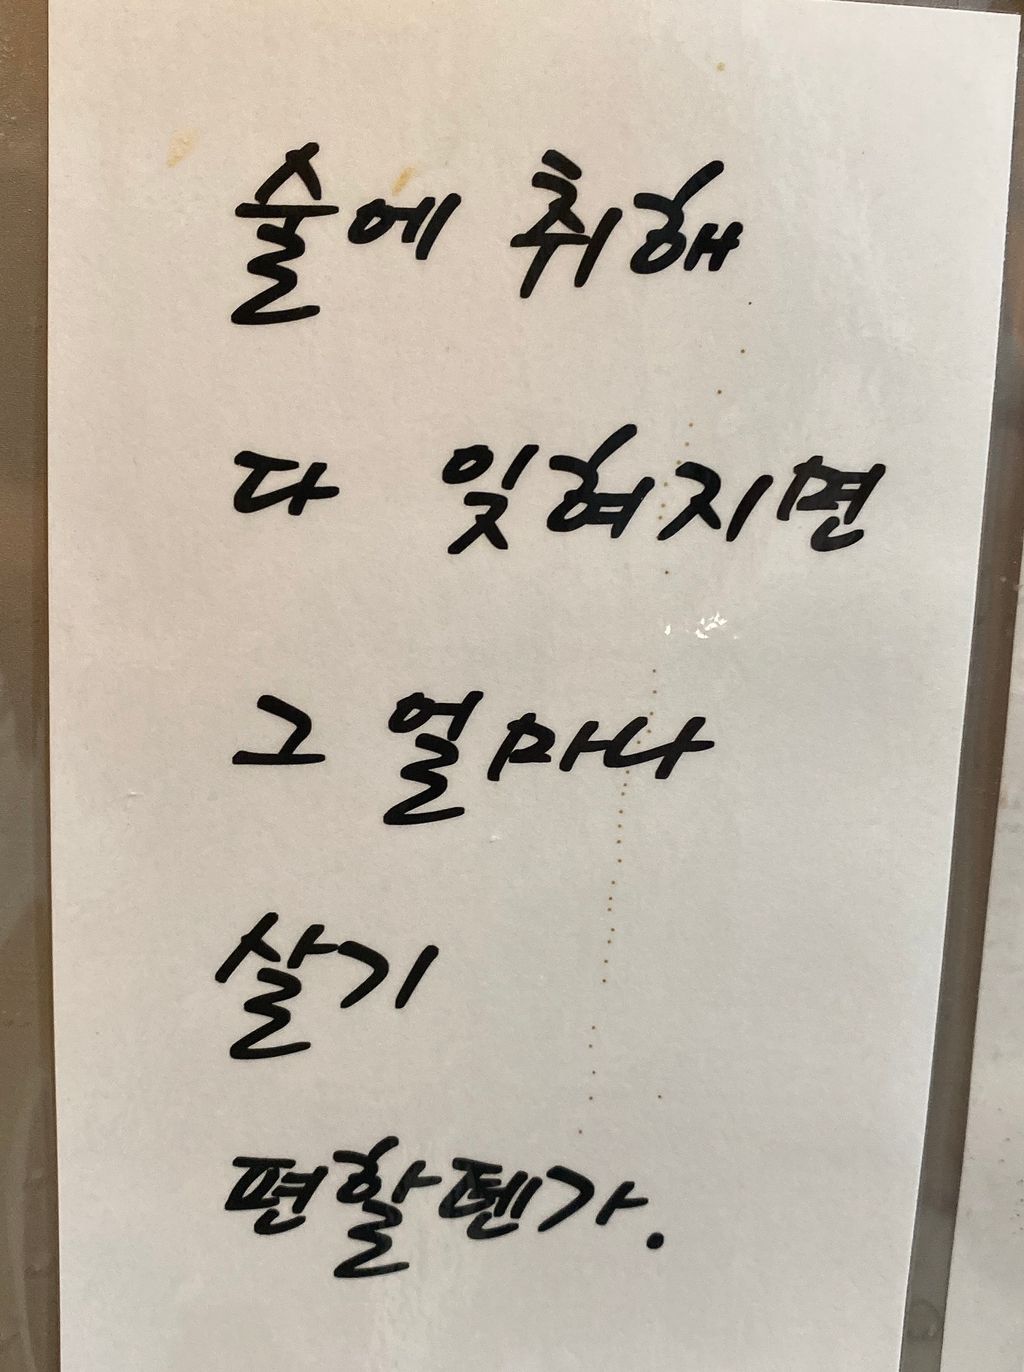 술에 취해
다 잊혀지면
그 얼마나
살기
편할텐가.